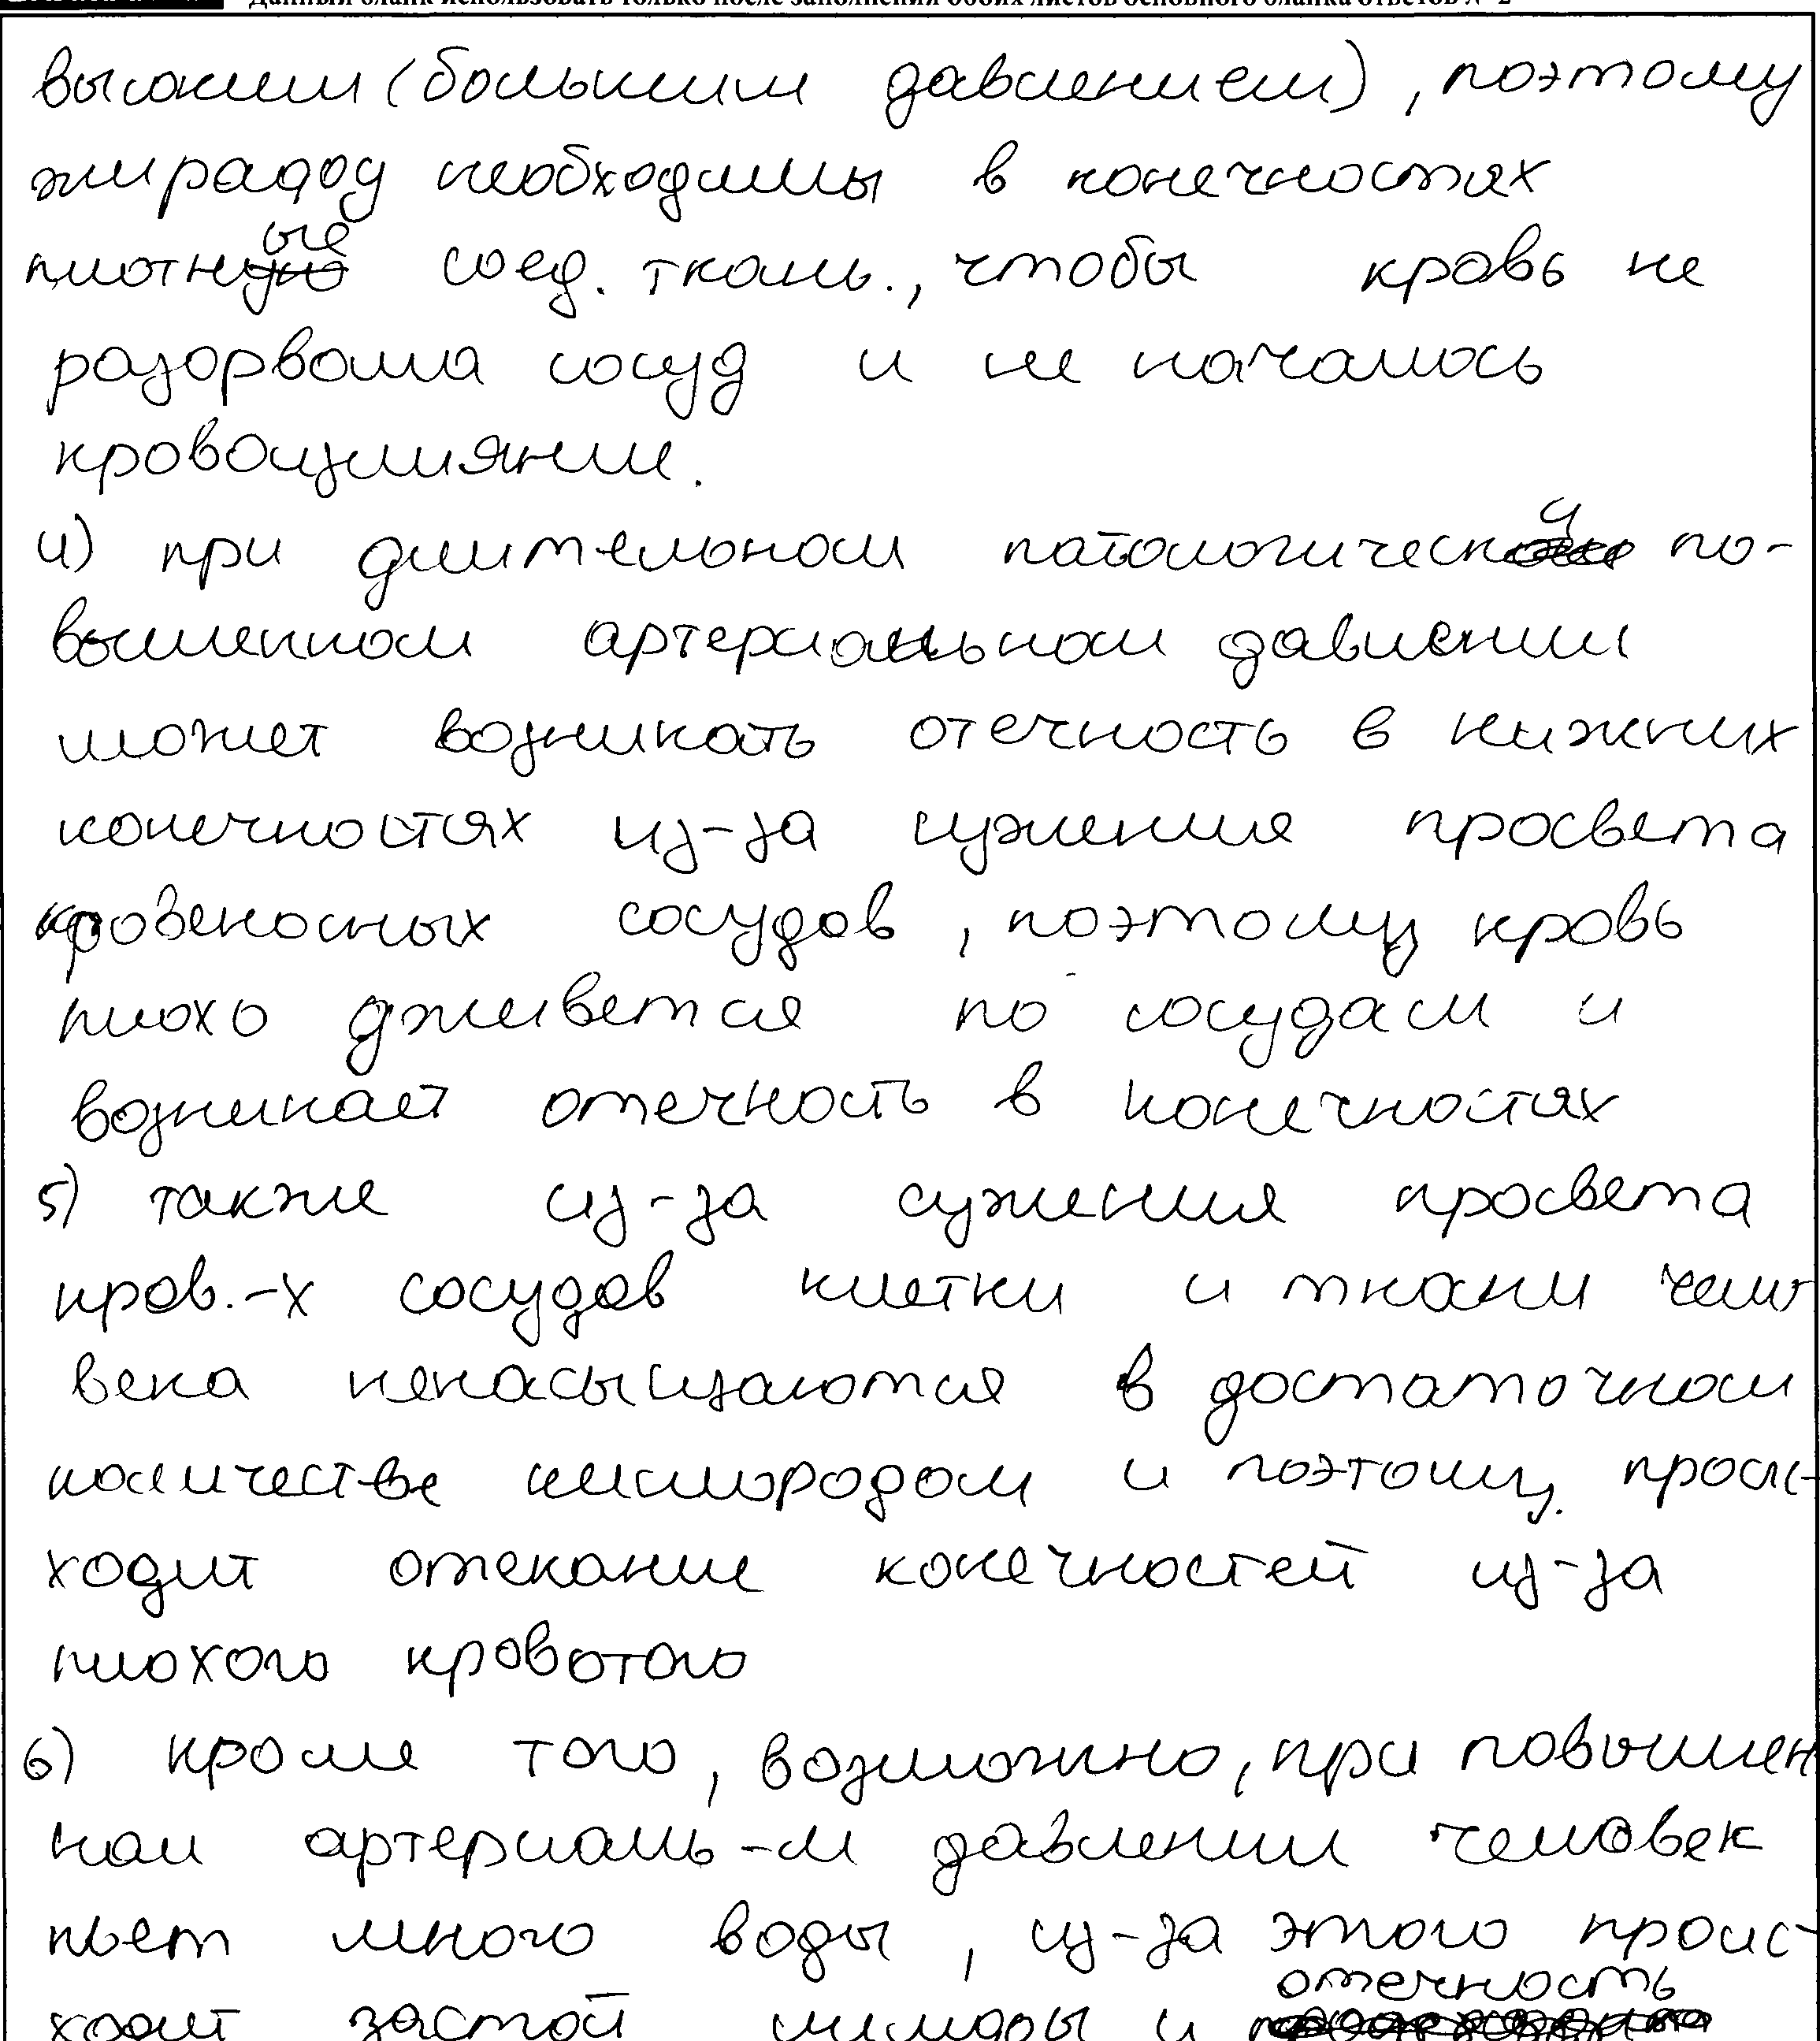 Данный бланк использовать только после заполнения обоих листов основного бланка ответов № 2
высоким (большим давлением), поэтому
жирафу необходимы в конечностях
плотные соед. ткань., чтобы кровь не
разорвала сосуд и не началось
кровоизлияние.
4) при длительном патологически по-
вышенном артериальном давлении
может возникать отечность в нижних
конечностях из-за сужения просвета
кровеносных сосудов, поэтому кровь
плохо движется по сосудам и
возникает отечность в конечностях
5) также из-за сужения просвета
кров.-х сосудов клетки и ткани чело
века ненасыщаются в достаточном
количестве кислородом и поэтому проис-
ходит отекание конечностей из-за
плохого кровотого
6) кроме того, возможно, при повышен
ном артериаль-м давлении человек
пьет много воды, из-за этого проис-
ходит застой лимфы и отечность